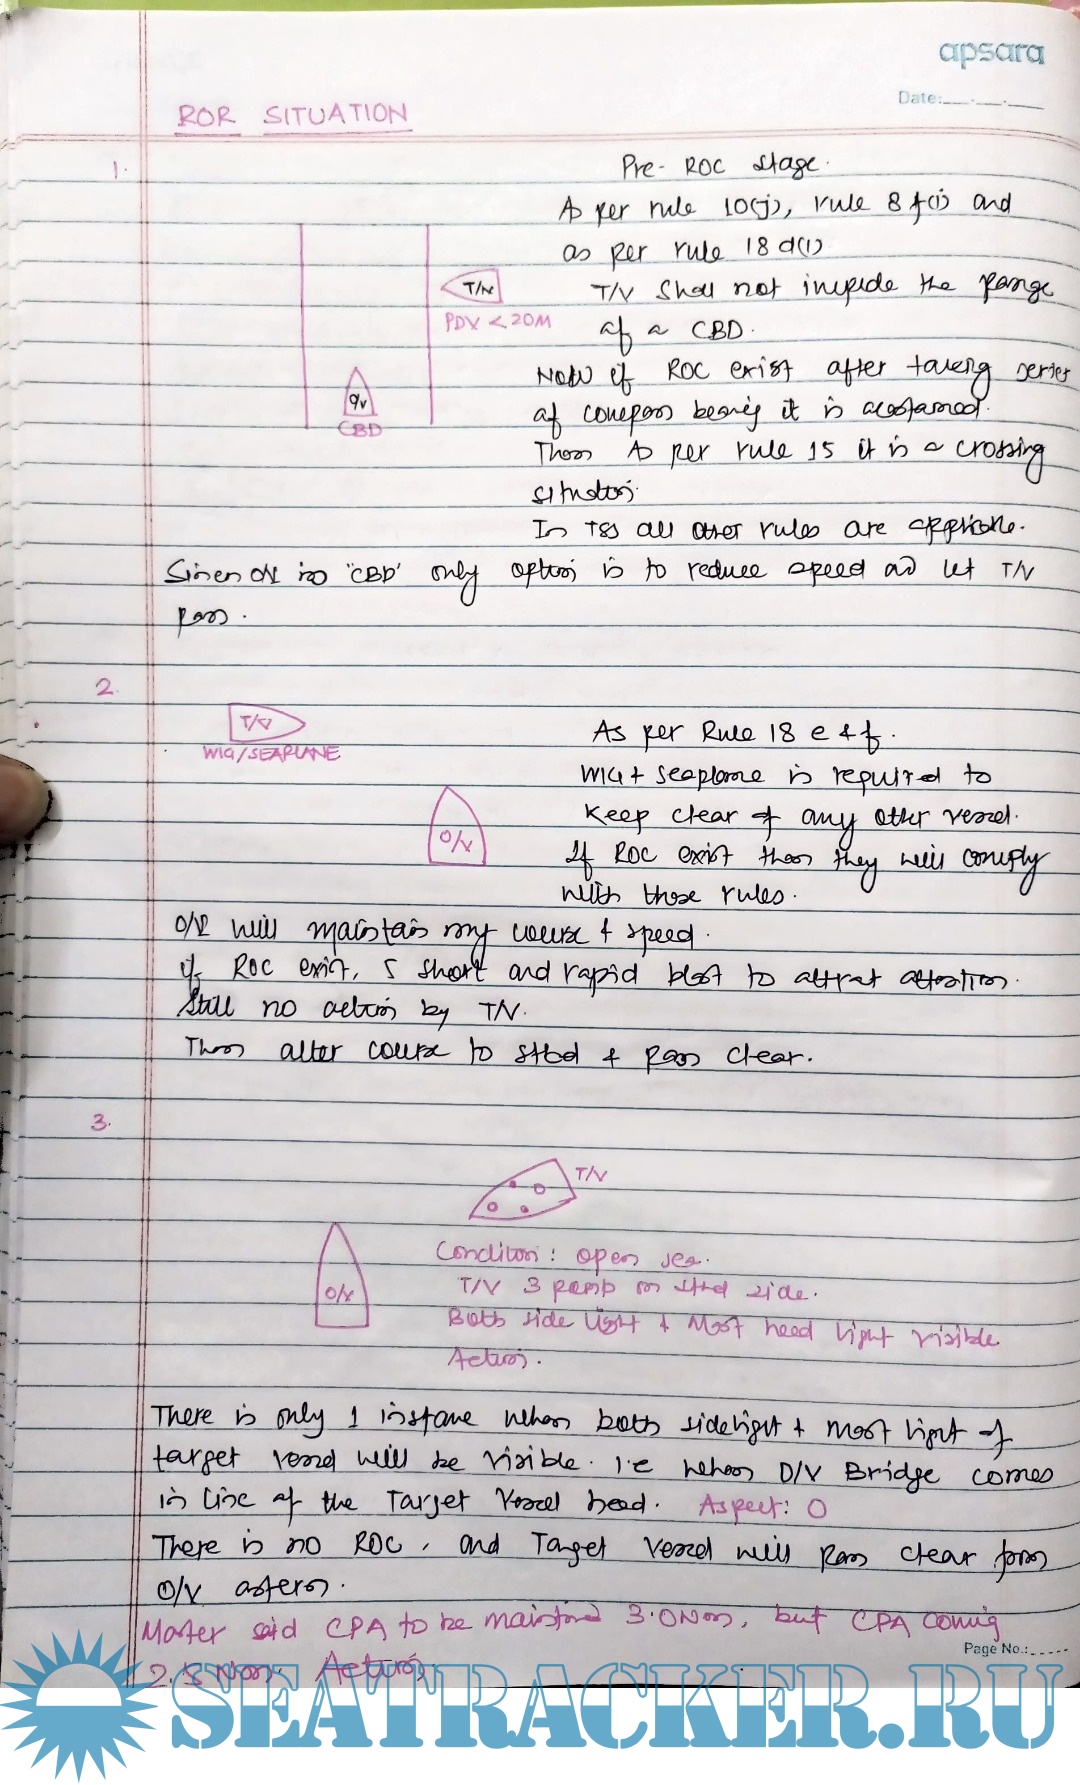 apsara
Date:
ROR SITUATION
1.
Pre-ROC Stage.
As per rule 10(j), rule 8 f(i) and
as per rule 18 d(i)
T/V shall not impede the
of a CBD.
Now if ROC exist after taking series
of compass bearing it is
Then As per rule 15 it is a crossing
situation.
In TSS all other rules are applicable.
Since O/V is 'CBD' only option is to reduce speed and let T/V
pass.
T/V
PDV < 20M
O/V
CBD
2.
T/V
WIG/SEAPLANE
O/V
As per Rule 18 e & f.
WIG + Seaplane is required to
keep clear of any other vessel.
If ROC exist then they will comply
with those rules.
O/V will maintain my course & speed.
if ROC exist, 5 short and rapid blast to attract attention.
Still no action by T/V.
Then alter course to stbd & pass clear.
3.
T/V
O/V
Condition: open sea.
T/V 3 on stbd side.
Both side light & Mast head light visible
Action.
There is only 1 instance when both sidelight & mast light of
target vessel will be visible. i.e when O/V Bridge comes
in line of the Target Vessel head. Aspect: 0
There is no ROC, and Target vessel will pass clear from
O/V astern.
Master said CPA to be maintained 3.0Nm, but CPA coming
Nm. Action
Page No.:
SEATRACKER.RU